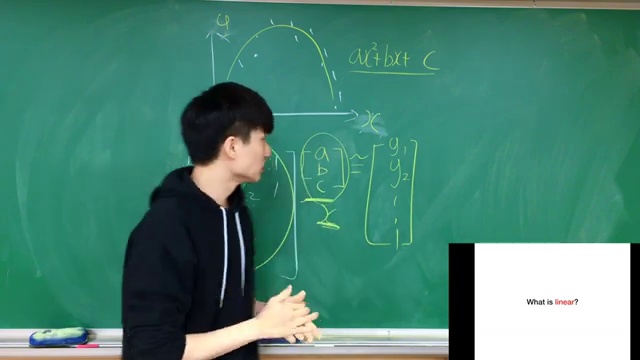 y
ax²+bx+ c
x
a
b
c
x
≃
y₁
y₂
What is linear?